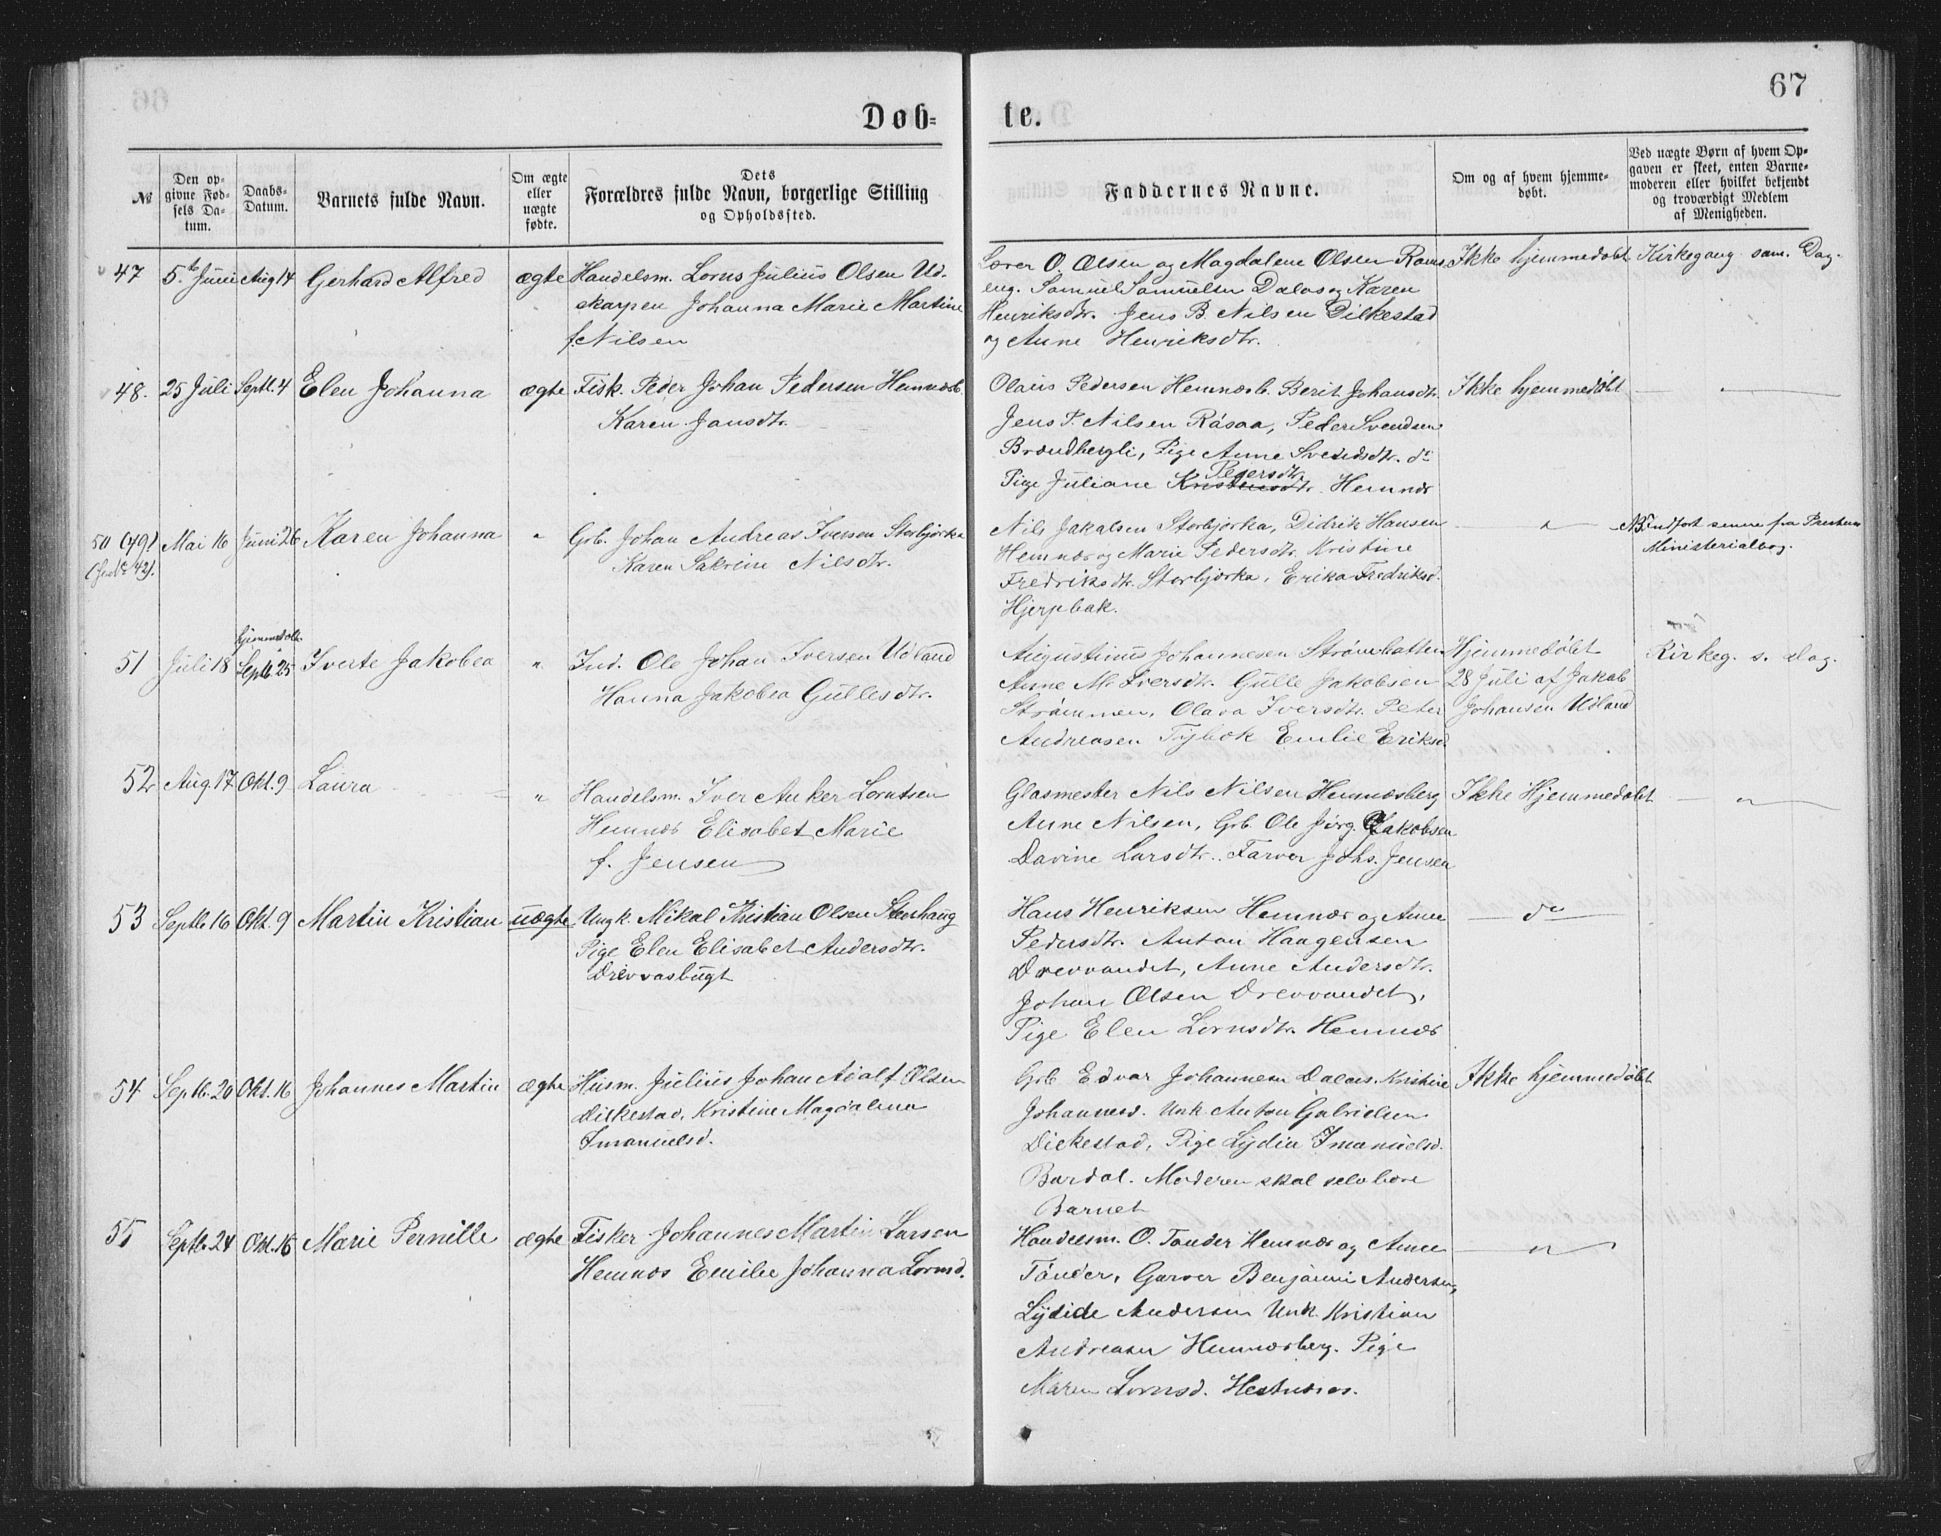 67
Døb=
te.
№
Den op-
givne Fød-
sels Da-
tum.
Daabs-
Datum.
Barnets fulde Navn.
Om ægte
eller
uægte
fødte.
Dets
Forældres fulde Navn, borgerlige Stilling
og Opholdssted.
Faddernes Navne.
Om og af hvem hjemme-
døbt.
Ved uægte Børn af hvem Op-
gaven er skeet, enten Barne-
moderen eller hvilket bekjendt
og troværdigt Medlem
af Menigheden.
47
5te Juni
Aug 14
Gerhard Alfred
ægte
Handelsm. Lorns Julius Olsen Ud-
skarpen Johanna Marie Martine
f. Nilsen
Lærer O. Olsen og Magdalene Olsen Rans
eng. Samuel Samuelsen Dalos og Karen
Henriksdtr. Jens B Nilsen Dilkestad
og Anne Henriksdtr.
Ikke hjemmedøbt
Kirkegang sam. Dag.
48.
25 Juli
Septb. 4
Elen Johanna
ægte
Fisk. Peder Johan Pedersen Hemnæsb.
Karen Jansdtr.
Olaus Pedersen Hemnæsb. Berit Johansdtr.
Jens P. Nilsen Råsaa, Peder Svendsen
Brændbergli, Pige Anne Svendsdtr. do
Pedersdtr.
Pige Juliane Kristensdtr. Hemnæs
Ikke hjemmedøbt
"
50 (49)
Mai 16
Juni 26
Karen Johanna
"
Grb. Johan Andreas Iversen Storbjørka
Karen Sakrine Nilsdtr.
Nils Jakobsen Storbjørka, Didrik Hansen
Hemnæs og Marie Pedersdtr. Kristine
Fredriksdtr. Storbjørka, Erika Fredriksd.
Hjerpbak.
"
NB. Indført senere fra Prestens
Ministerialbog.
51
Juli 18
hjemmedøbt.
Septb. 25
Iverte Jakobea
"
Ind. Ole Johan Iversen Udland
Hanna Jakobea Gullesdtr.
Augustinus Johannesen Strømhatten
Anne M. Iversdtr. Gulle Jakobsen
Strømmen, Olava Iversdtr. Peter
Andreasen Tybæk Emelie Eriksd.
Hjemmedøbt
28 Juli af Jakob
Johansen Udland
Kirkeg. s. dag.
52
Aug. 17
Okt. 9
Laura
"
Handelsm. Iver Anker Lorntsen
Hemnæs Elisabet Marie
f. Jensen
Glasmester Nils Nilsen Hemnæsberg
Anne Nilsen, Grb. Ole Jørg. Jakobsen
Davine Larsdtr. Farver Johs. Jensen
Ikke Hjemmedøbt
"
53
Septb. 16
Okt. 9
Martin Kristian
uægte
Ungk. Mikal Kristian Olsen Stenhaug
Pige Elen Elisabet Andersdtr.
Drevvasbugt
Hans Henriksen Hemnæs og Anne
Pedersdtr. Anton Haagensen
Drevvandet, Anne Andersdtr.
Johan Olsen Drevvandet,
Pige Elen Lornsdtr. Hemnæs
do
54
Septb. 20
Okt. 16
Johannes Martin
ægte
Husm. Julius Johan Adolf Olsen
Dilkestad, Kristine Magdalena
Imanuelsd.
Grb. Edvar Johannesen Dalos. Kristine
Johannesd. Unk. Anton Gabrielsen
Dilkestad, Pige Lydia Imanuelsd.
Bardal. Moderen skal selv bære
Barnet
Ikke hjemmedøbt
55
Septb. 24
Okt. 16
Marie Pernille
ægte
Fisker Johannes Martin Larsen
Hemnæs Emilie Johanna Lornsd.
Handelsm. O. Tønder Hemnæs og Anne
Tønder, Garver Benjamin Andersen,
Lydide Andersen Unk. Kristian
Andreasen Hemnæsberg. Pige
Maren Lornsd. Hestnæsos.
"